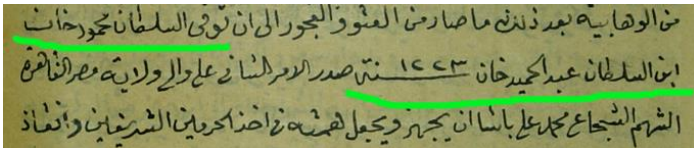 من الوهابية بعد ذلك ما صار من العتو والفجور الى ان توفى السلطان محمود خان
ابن السلطان عبد الحميد خان ١٢٢٣ سنة صدر الامر الثانى على والى ولاية مصر القاهرة
الشهم الشجاع محمد على باشا ان يجهز ويجعل همته فى اخذ الحرمين الشريفين وانقاذ